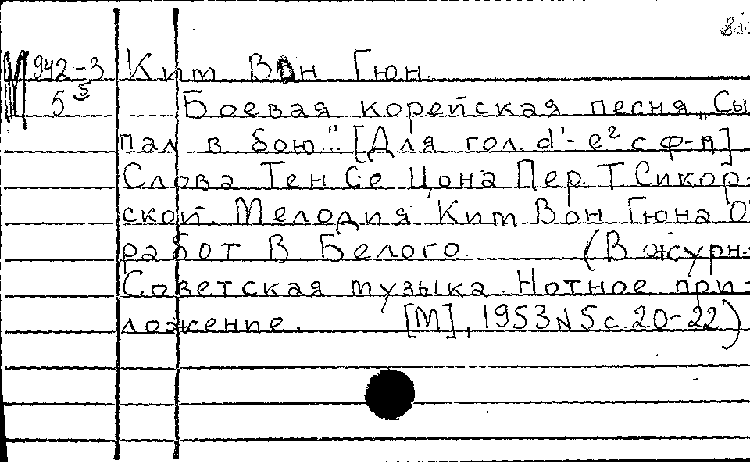 М 942-3 Ким Вон Гюн
5 Боевая корейская песня „Сы
пал в бою". [Для гол. d'-e² с ф-п]
Слова Тен Се Цона Пер. Т. Сикор-
ской. Мелодия Ким Вон Гюна О
работ В Белого. (В журн.
Советская музыка. Нотное при-
ложение. [М], 1953 № 5 с 20-22)